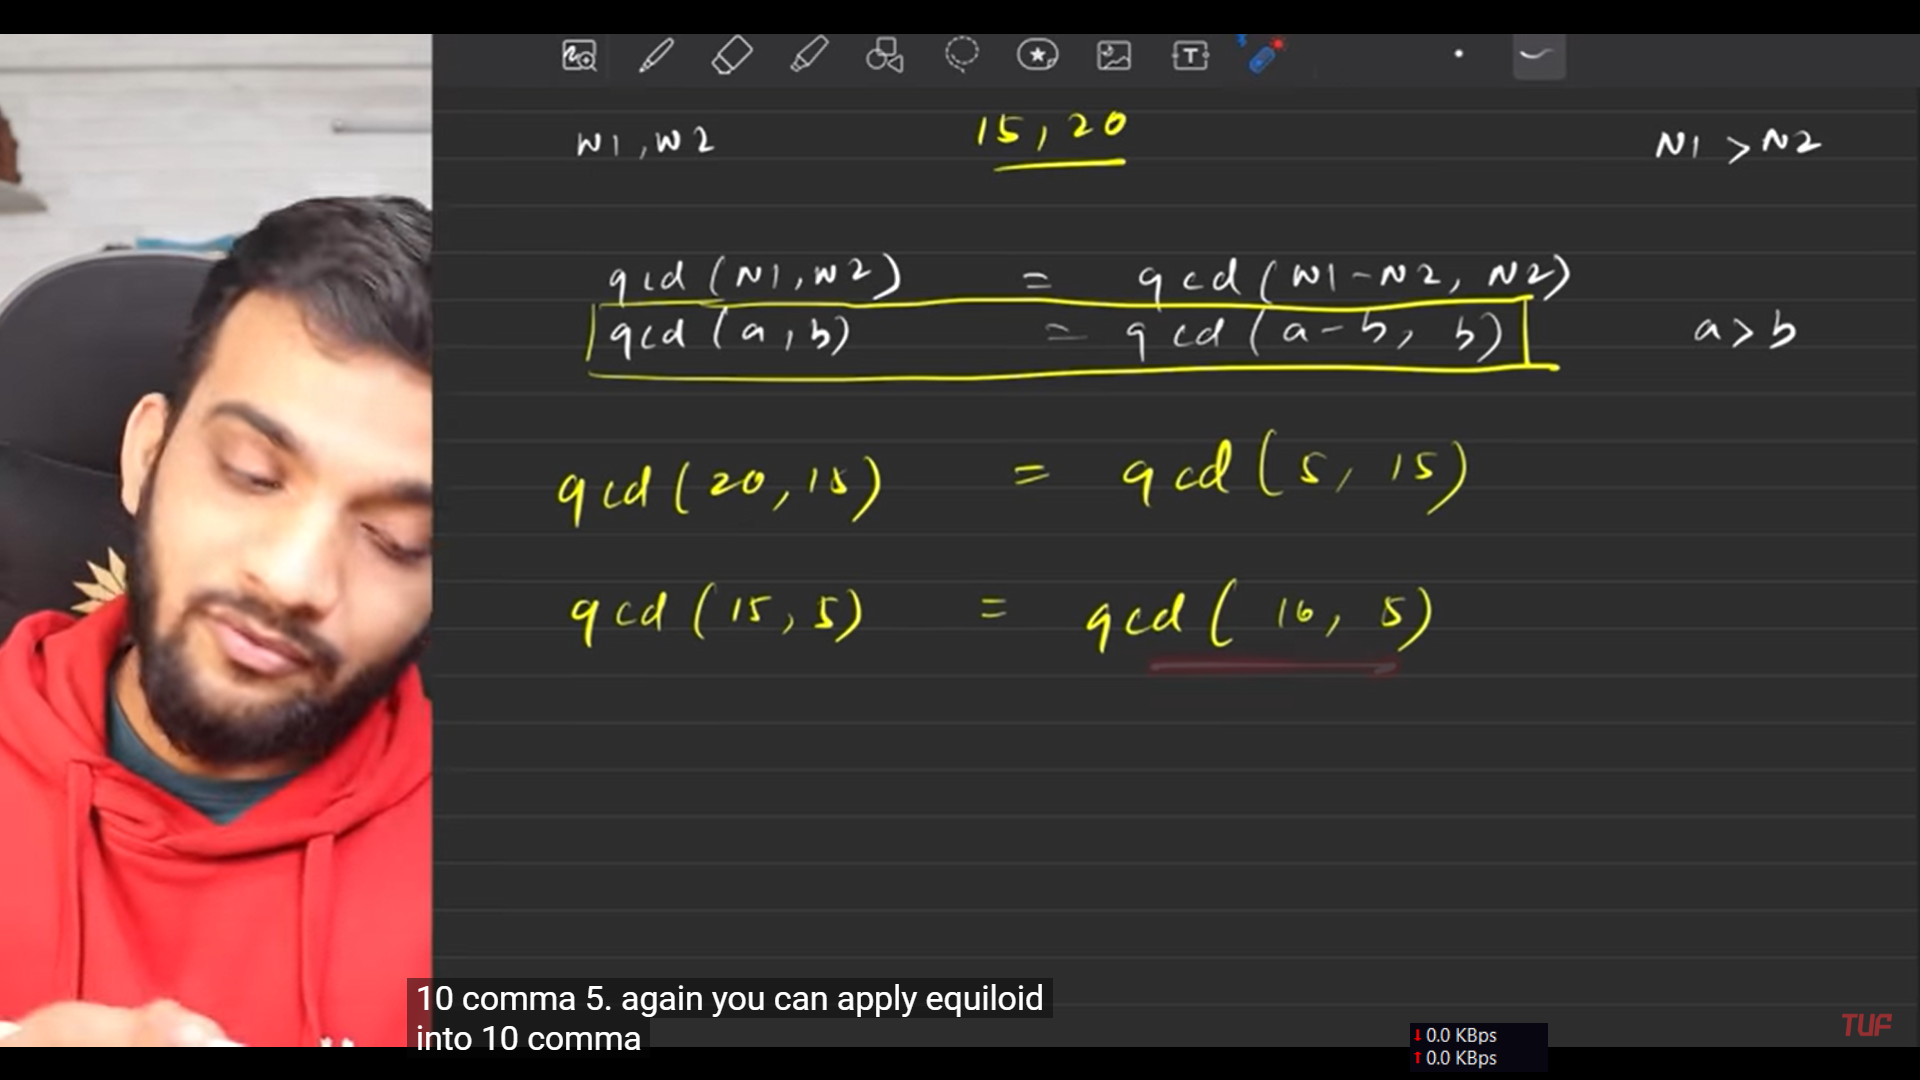 N1, N2 15, 20 N1 > N2
gcd (N1, N2) = gcd (N1 - N2, N2)
gcd (a, b) = gcd (a - b, b) a > b
gcd (20, 15) = gcd (5, 15)
gcd (15, 5) = gcd (10, 5)
10 comma 5. again you can apply equiloid
into 10 comma
TUF
↓ 0.0 KBps
↑ 0.0 KBps